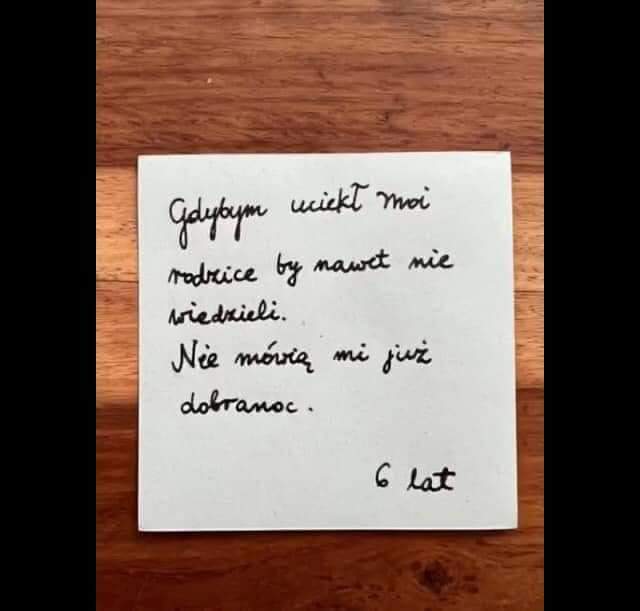 Gdybym uciekł moi
rodzice by nawet nie
wiedzieli.
Nie mówią mi już
dobranoc.
6 lat